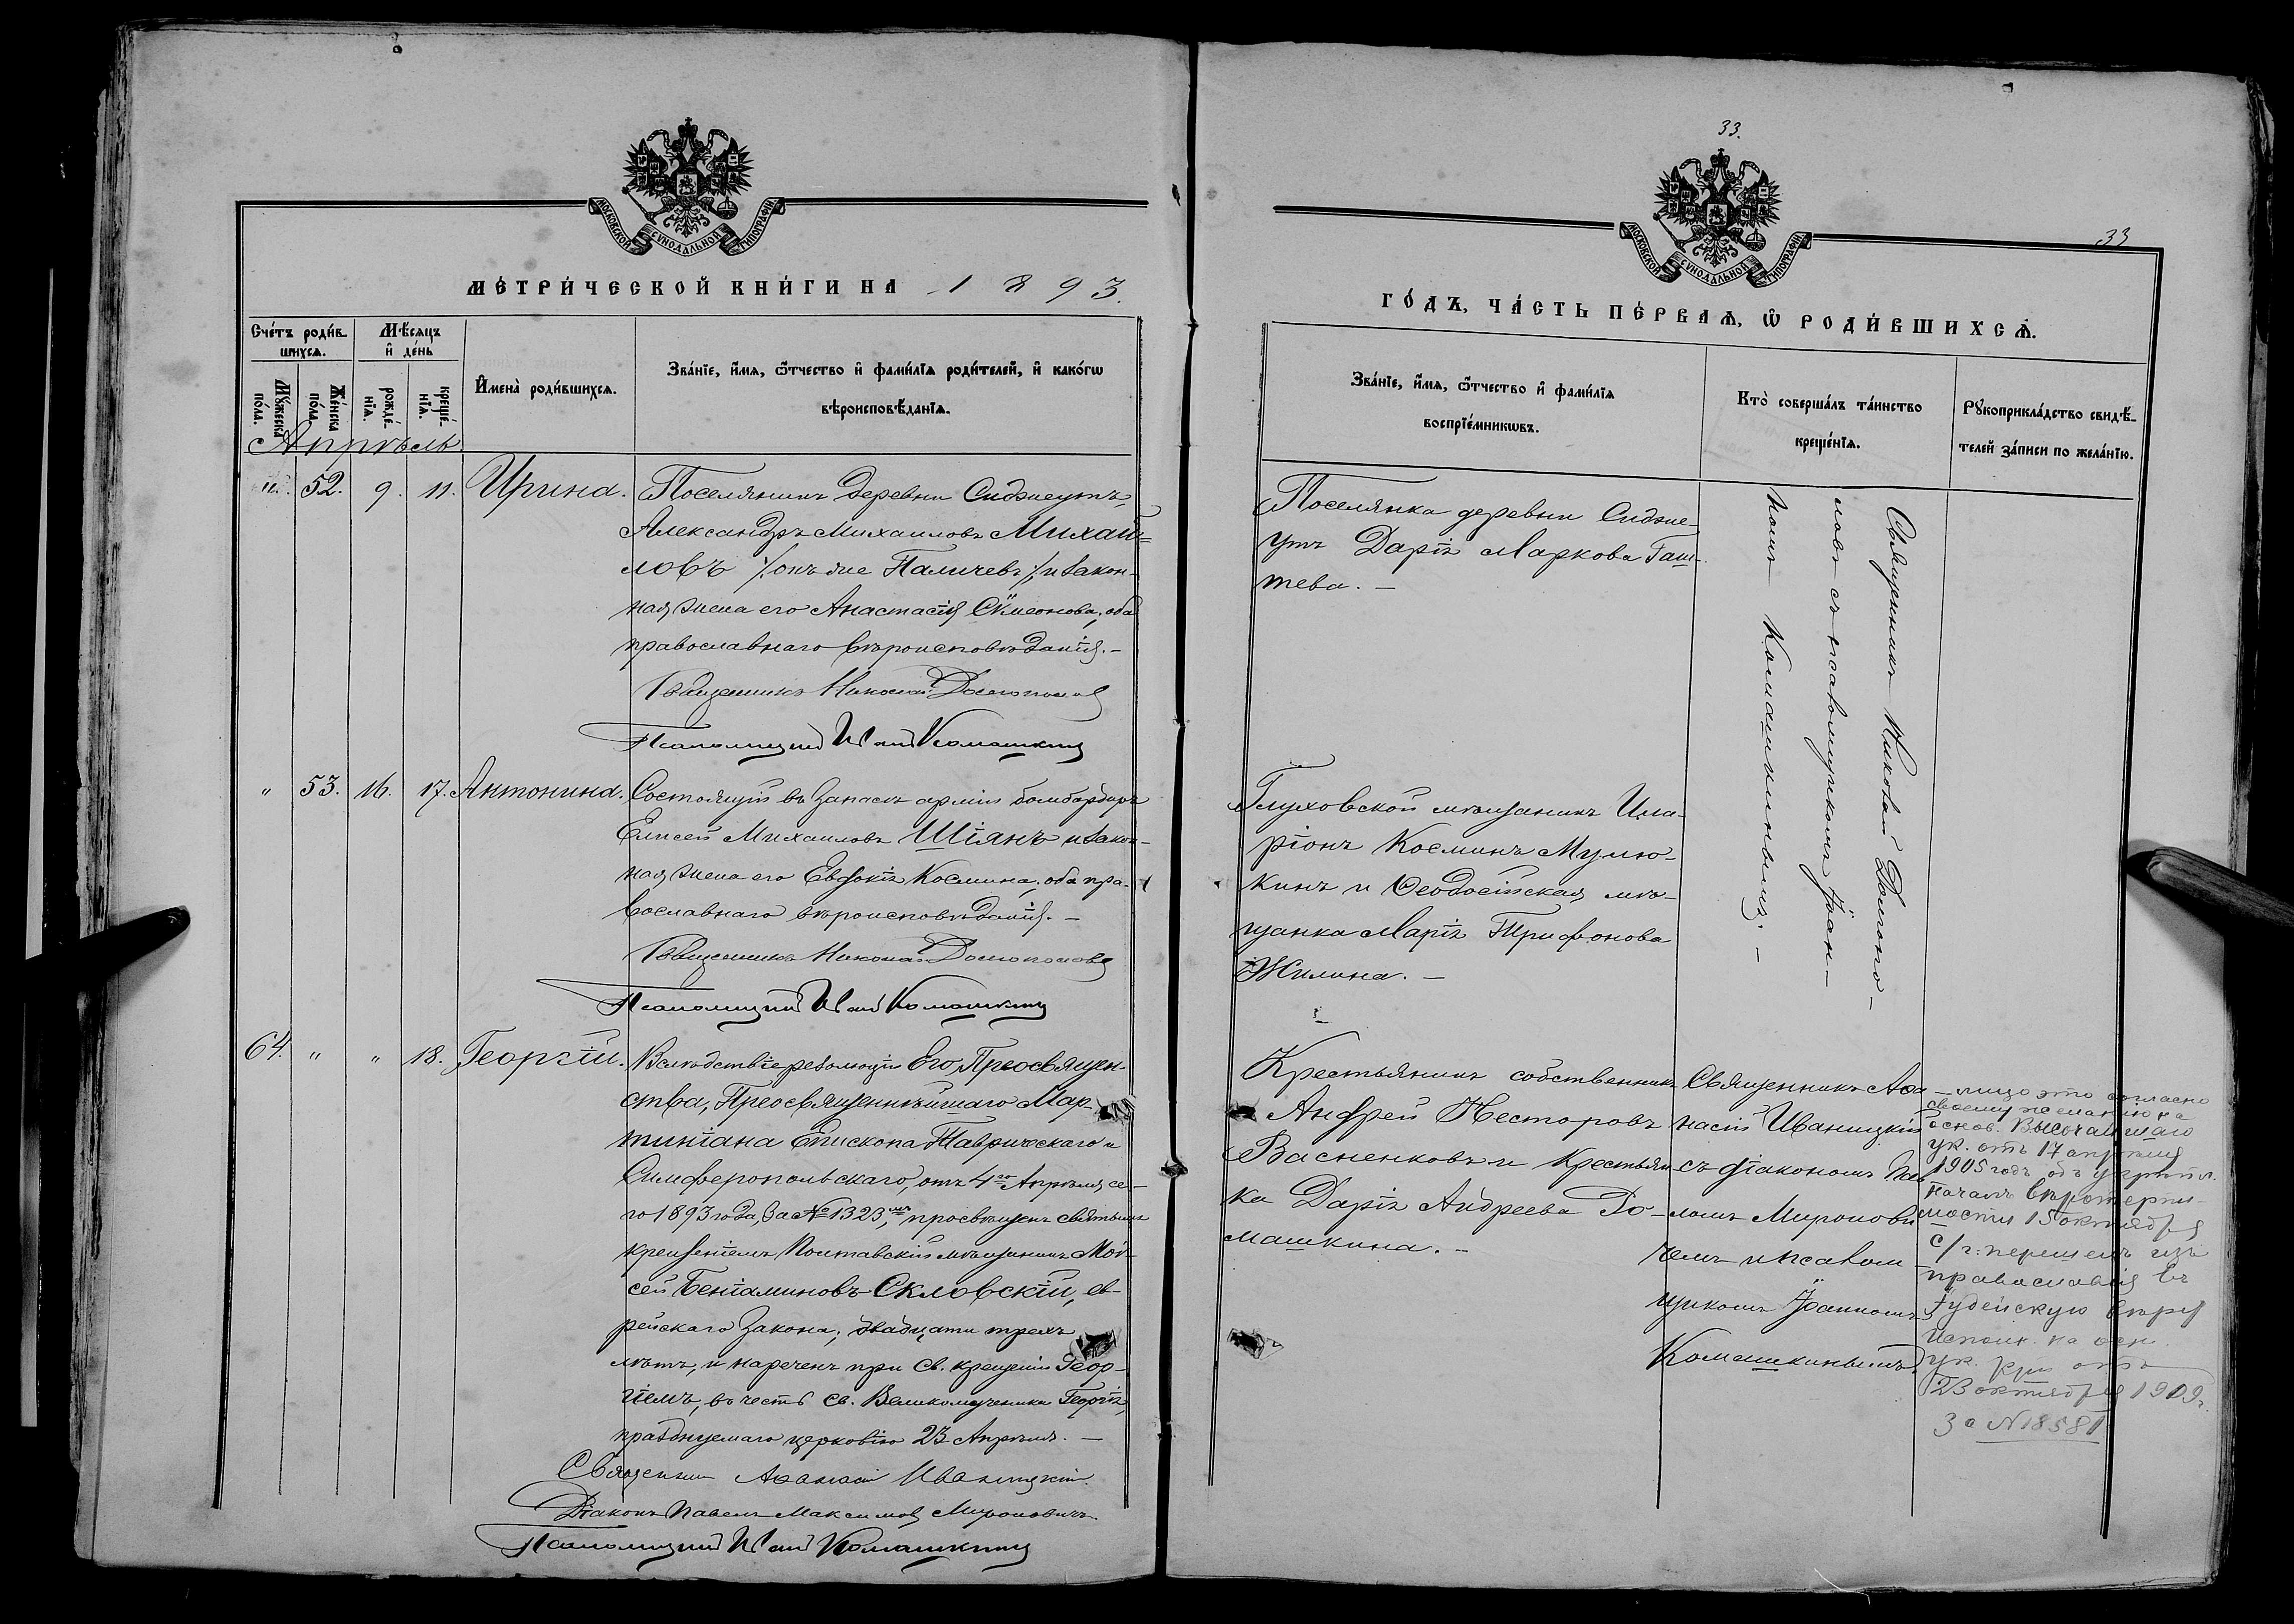 МОСКОВСКОЙ СУНОДАЛЬНОЙ ТИПОГРАФІИ
МЕТРИ́ЧЕСКОЙ КНИ́ГИ НА 1893.
Сче́тъ роди́в-
шихся.
Мѣ́сяцъ
и҆ де́нь
Мꙋ́жеска
по́ла.
Же́нска
по́ла.
рожде́-
нїѧ.
креще́-
нїѧ.
И҆мена̀ роди́вшихсѧ.
Зва́нїе, и҆́мѧ, ѻ҆́тчество и҆ фами́лїѧ роди́телей, и҆ како́гѡ
вѣроисповѣ́данїѧ.
Апрѣль.
". 52. 9. 11. Ирина.
Поселянинъ деревни Сиджеутъ,
Александръ Михаиловъ Михай=
ловъ /:онъ же Паличевъ:/ и закон-
ная жена его Анастасія Сѵмеонова, оба
православнаго вѣроисповѣданія.-
Священникъ Николай Долгополовъ
Псаломщикъ Иванъ Комашкинъ
" 53. 16. 17. Антонина.
Состоящій въ запасѣ арміи бомбардиръ
Елисей Михаиловъ Шіянъ и закон-
ная жена его Евдокія Космина, оба пра-
вославнаго вѣроисповѣданія.-
Священникъ Николай Долгополовъ
Псаломщикъ Иванъ Комашкинъ
64. " " 18. Георгій.
Вслѣдствіе резолюціи Его Преосвящен-
ства, Преосвященнѣйшаго Мар-
тиніана Епископа Таврическаго и
Симферопольскаго, отъ 4го Апрѣля се-
го 1893 года, за № 1323мъ, просвѣщенъ святымъ
крещеніемъ Полтавскій мѣщанинъ Мой-
сей Беніаминовъ Скловскій, ев-
рейскаго закона, двадцати трехъ
лѣтъ, и нареченъ при св. крещеніи Геор-
гіемъ, въ честь св. Великомученика Георгія,
празднуемаго церковію 23 Апрѣля.-
Священникъ Аѳанасій Иваницкій.
Діаконъ Павелъ Максимовъ Мироновичъ.
Псаломщикъ Иванъ Комашкинъ
33.
33
МОСКОВСКОЙ СУНОДАЛЬНОЙ ТИПОГРАФІИ
ГО́ДЪ, ЧА́СТЬ ПЕ́РВАѦ, Ѡ҆ РОДИ́ВШИХСѦ.
Зва́нїе, и҆́мѧ, ѻ҆́тчество и҆ фами́лїѧ
воспрїе́мникѡвъ.
Кто̀ соверша́лъ та́инство
креще́нїѧ.
Рꙋкоприкла́дство свидѣ́-
телей за́писи по жела́нїю.
Поселянка деревни Сидже-
утъ Дарія Маркова Гаш-
тева.-
Священникъ Николай Долгопо-
ловъ съ псаломщикомъ Іоан-
номъ Комашкинымъ.-
Глуховской мѣщанинъ Ила-
ріонъ Косминъ Мулю-
кинъ и Ѳеодосійская мѣ-
щанка Марія Трифонова
Жилина.-
Крестьянинъ собственникъ
Андрей Несторовъ
Васненковъ и крестьян-
ка Дарія Андреева До-
машкина.-
Священникъ Аѳа-
насій Иваницкій
съ діакономъ Пав-
ломъ Миронови-
чемъ и псалом-
щикомъ Іоанномъ
Комашкинымъ
- лицо это согласно
своему желанію на
основ. Высочайшаго
ук. отъ 17 апрѣля
1905 годъ объ укрѣпл.
началъ вѣротерпи-
мости 15 октября
с/г. перешелъ изъ
православія въ
Іудейскую вѣру
Исполн. на осн.
ук. отъ
23 октября 1909 г.
За № 18581